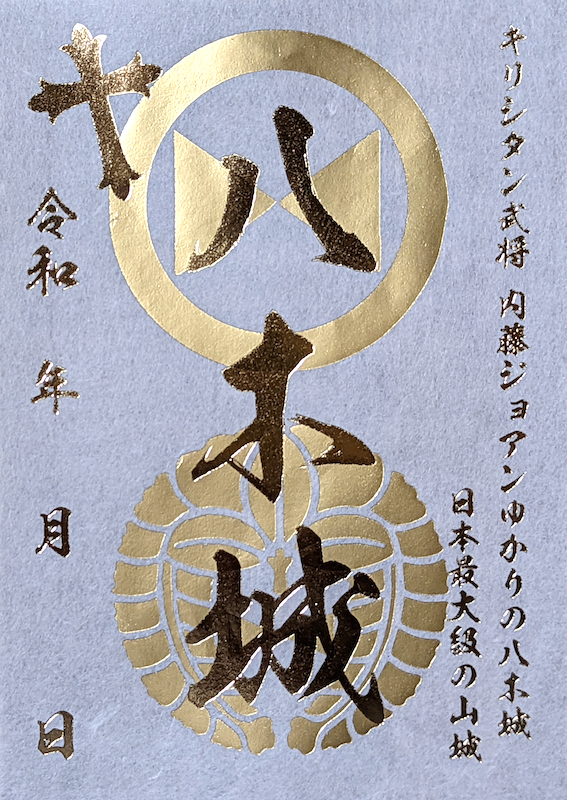 キリシタン武将 内藤ジョアンゆかりの八木城
日本最大級の山城
八木城
令和 年 月 日